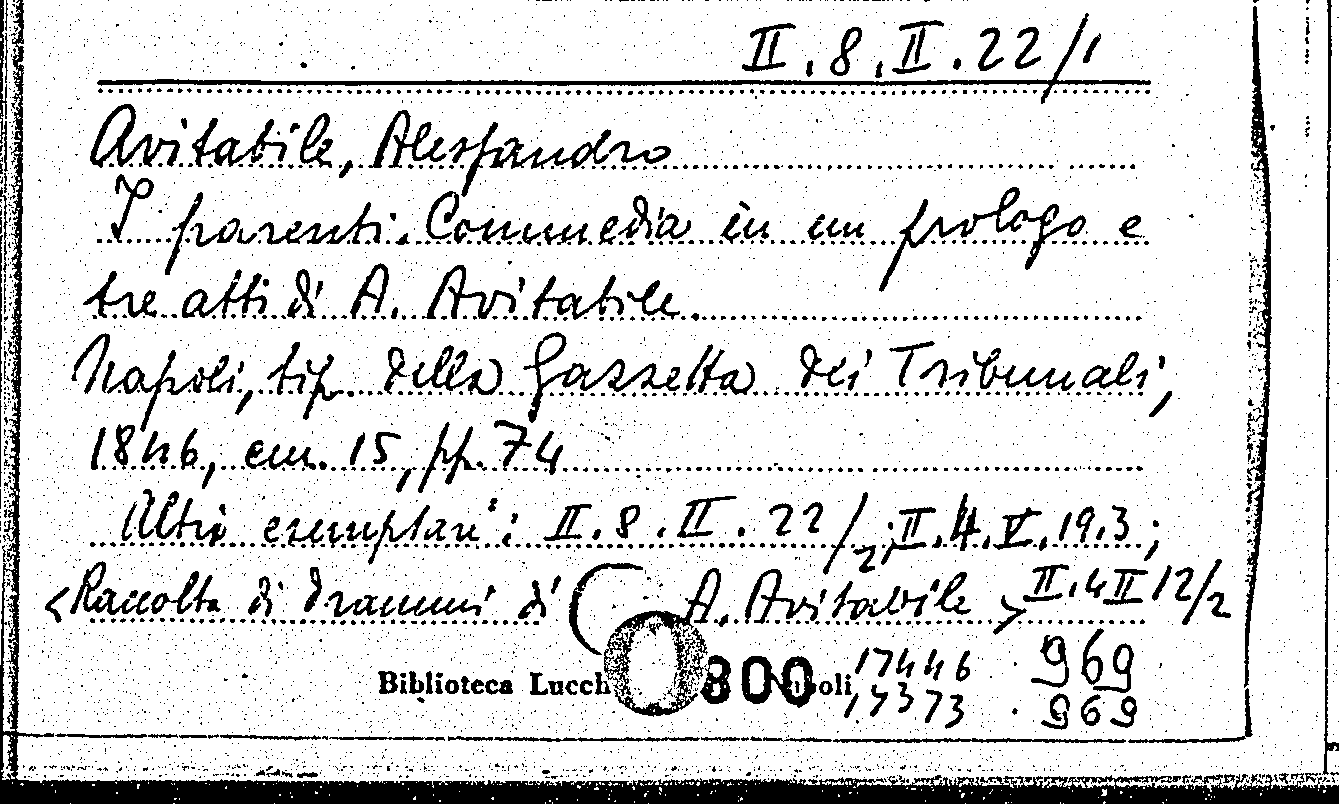 II.8.II.22/1
Avitabile, Alessandro
I parenti. Commedia in un prologo e
tre atti di A. Avitabile.
Napoli, tip. della Gazzetta dei Tribunali,
1846, cm. 15, pp. 74
Altri esemplari: II.8.II.22/2; II.4.V.19.3;
<Raccolta di drammi di A. Avitabile> II.4 II 12/2
17446 969
Biblioteca Lucch 800 oli
17373 969